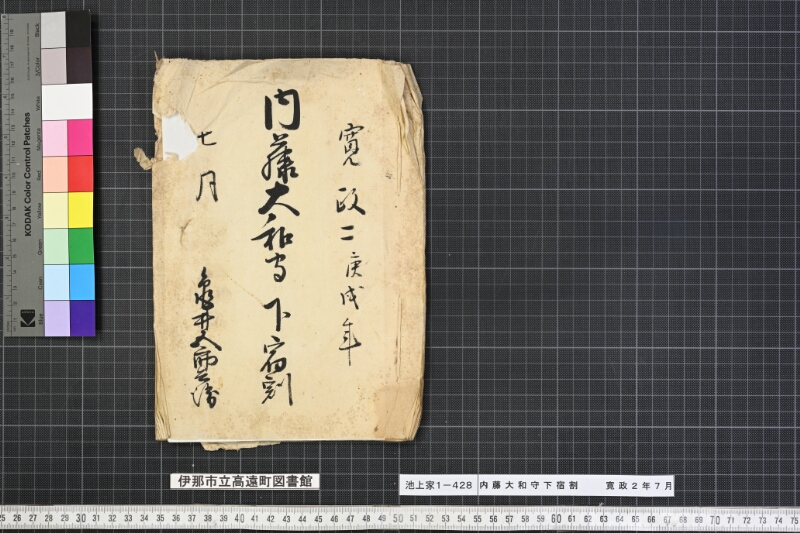 寛政二庚戌年
内藤大和守下宿割
七月
亀井又師兵衛
伊那市立高遠町図書館
池上家1-428 内藤大和守下宿割 寛政2年7月
KODAK Color Control Patches
Kodak
Blue
Cyan
Green
Yellow
Red
Magenta
White
3/Color
Black
25 26 27 28 29 30 31 32 33 34 35 36 37 38 39 40 41 42 43 44 45 46 47 48 49 50 51 52 53 54 55 56 57 58 59 60 61 62 63 64 65 66 67 68 69 70 71 72 73 74 75